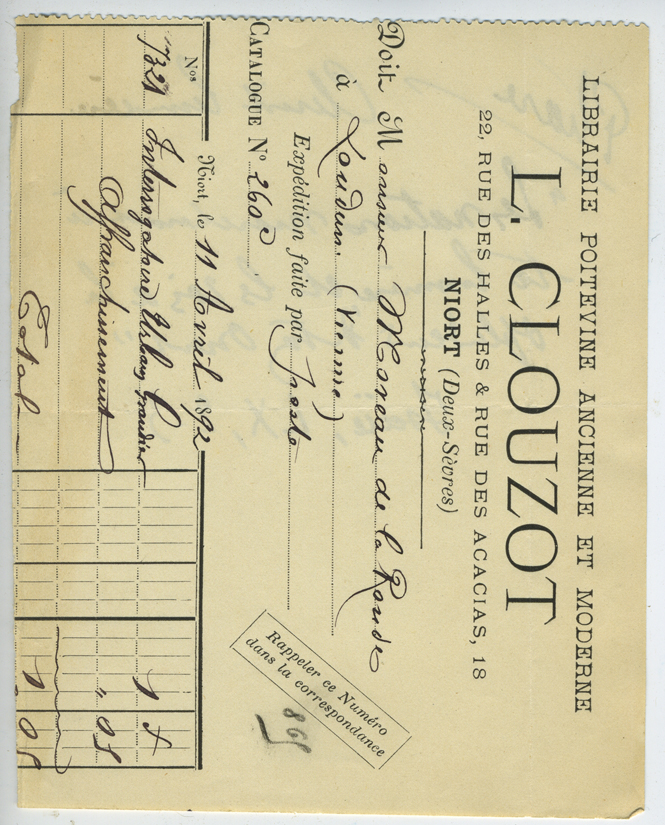 LIBRAIRIE POITEVINE ANCIENNE ET MODERNE
L. CLOUZOT
22, RUE DES HALLES & RUE DES ACACIAS, 18
NIORT (Deux-Sèvres)
Doit Monsieur Moreau de la Ronde
à Loudun. (Vienne)
Expédition faite par Poste
CATALOGUE N° 260
Rappeler ce Numéro
dans la correspondance
Niort, le 11 Avril 1892
Nos
7321 Interrogatoire Urbain Grandier 1
Affranchissement " 05
Total 1 05